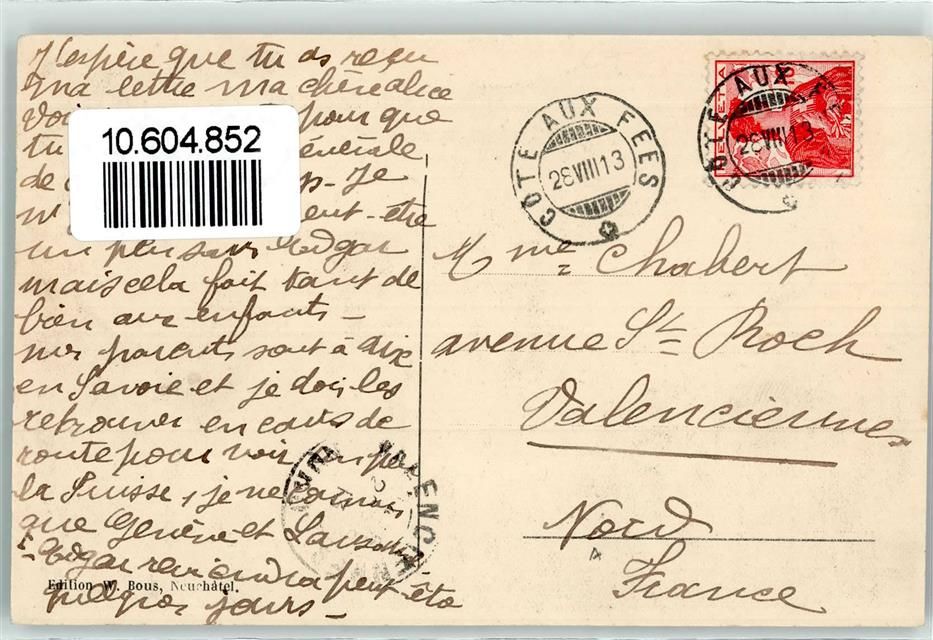 J'espère que tu as reçu
ma lettre ma chère alice
pour que
tu générale
de Je
peut-être
un peu sans Edgar
mais cela fait tant de
bien aux enfants -
mes parents sont à Aix
en Savoie et je dois les
retrouver en cours de
route pour voir un peu
la Suisse, je ne connais
que Genève et Lausanne
Edgar reviendra peut être
quelques jours -
Edition W. Bous, Neuchâtel.
10.604.852
COTE AUX FEES
28 VIII 13
HELVETIA
COTE AUX FEES
28 VIII 13
Mme Chabert
avenue St Roch
Valenciennes
Nord
France
VALENCIENNES